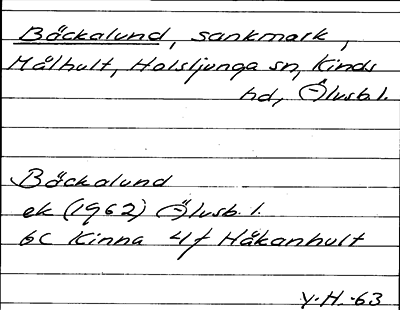 Bäckalund, sankmark,
Målhult, Holsljunga sn, Kinds
hd, Älvsb. l.
Bäckalund
ek (1962) Älvsb. l.
6C Kinna 4f Håkanhult
Y.H.-63